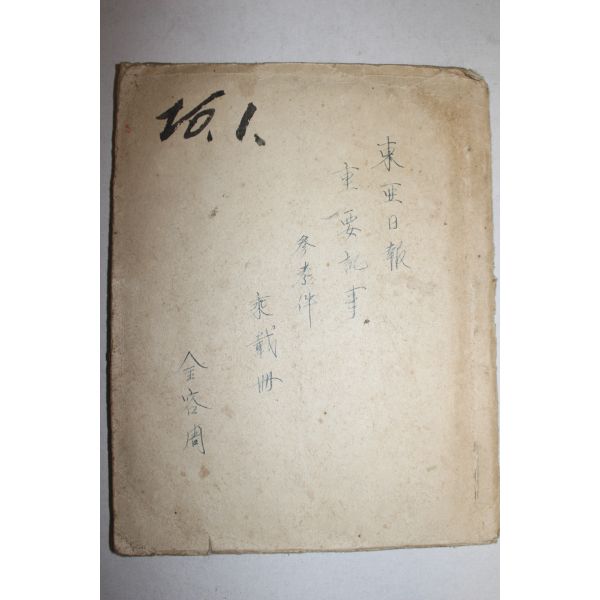 26.1.
東亜日報
重要記事
参考件
来載冊
金容周